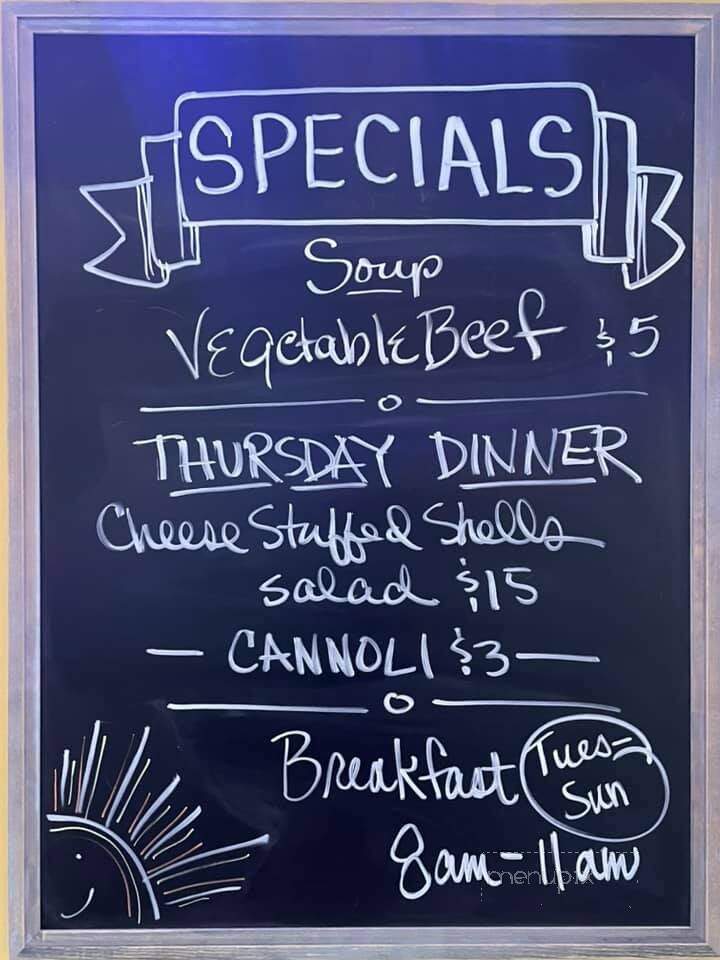 SPECIALS
Soup
Vegetable Beef $5
THURSDAY DINNER
Cheese Stuffed Shells
salad $15
— CANNOLI $3 —
Breakfast Tues-
Sun
8am-11am
menupix